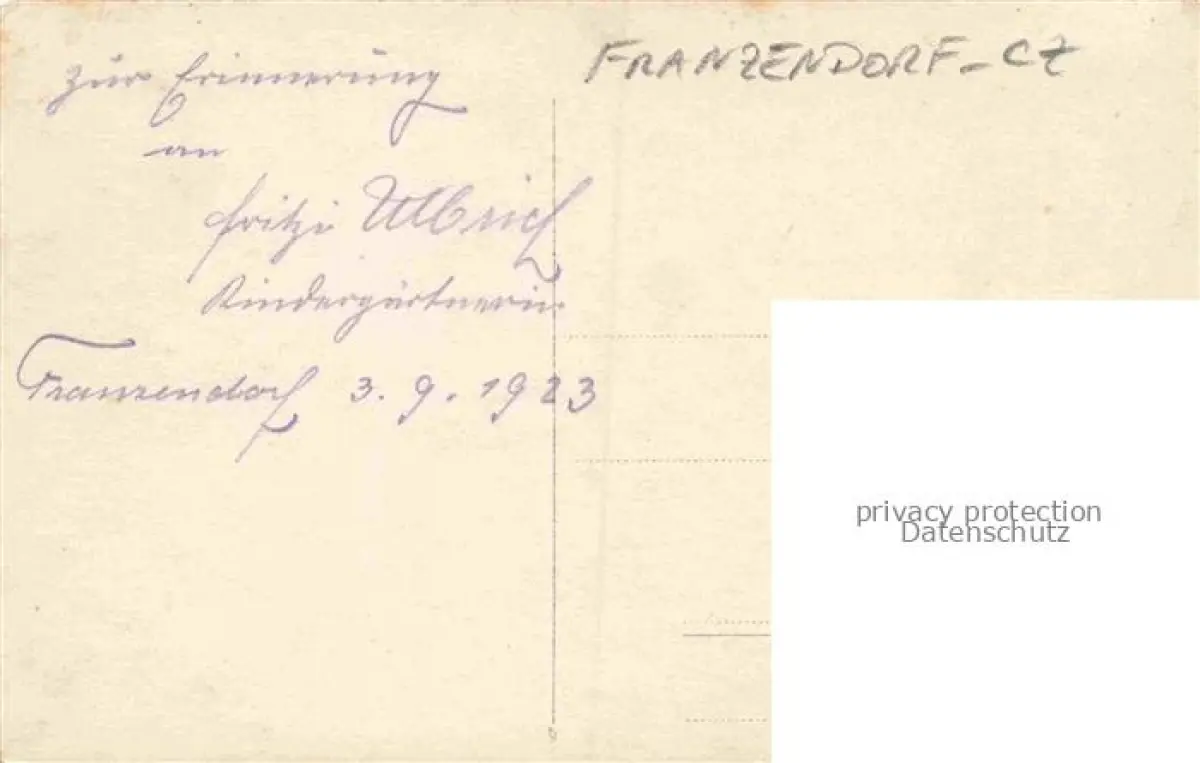 Zur Erinnerung
an
Fritzi Ulbrich
Kindergärtnerin.
Franzendorf 3. 9. 1923
FRANZENDORF - CZ
privacy protection
Datenschutz